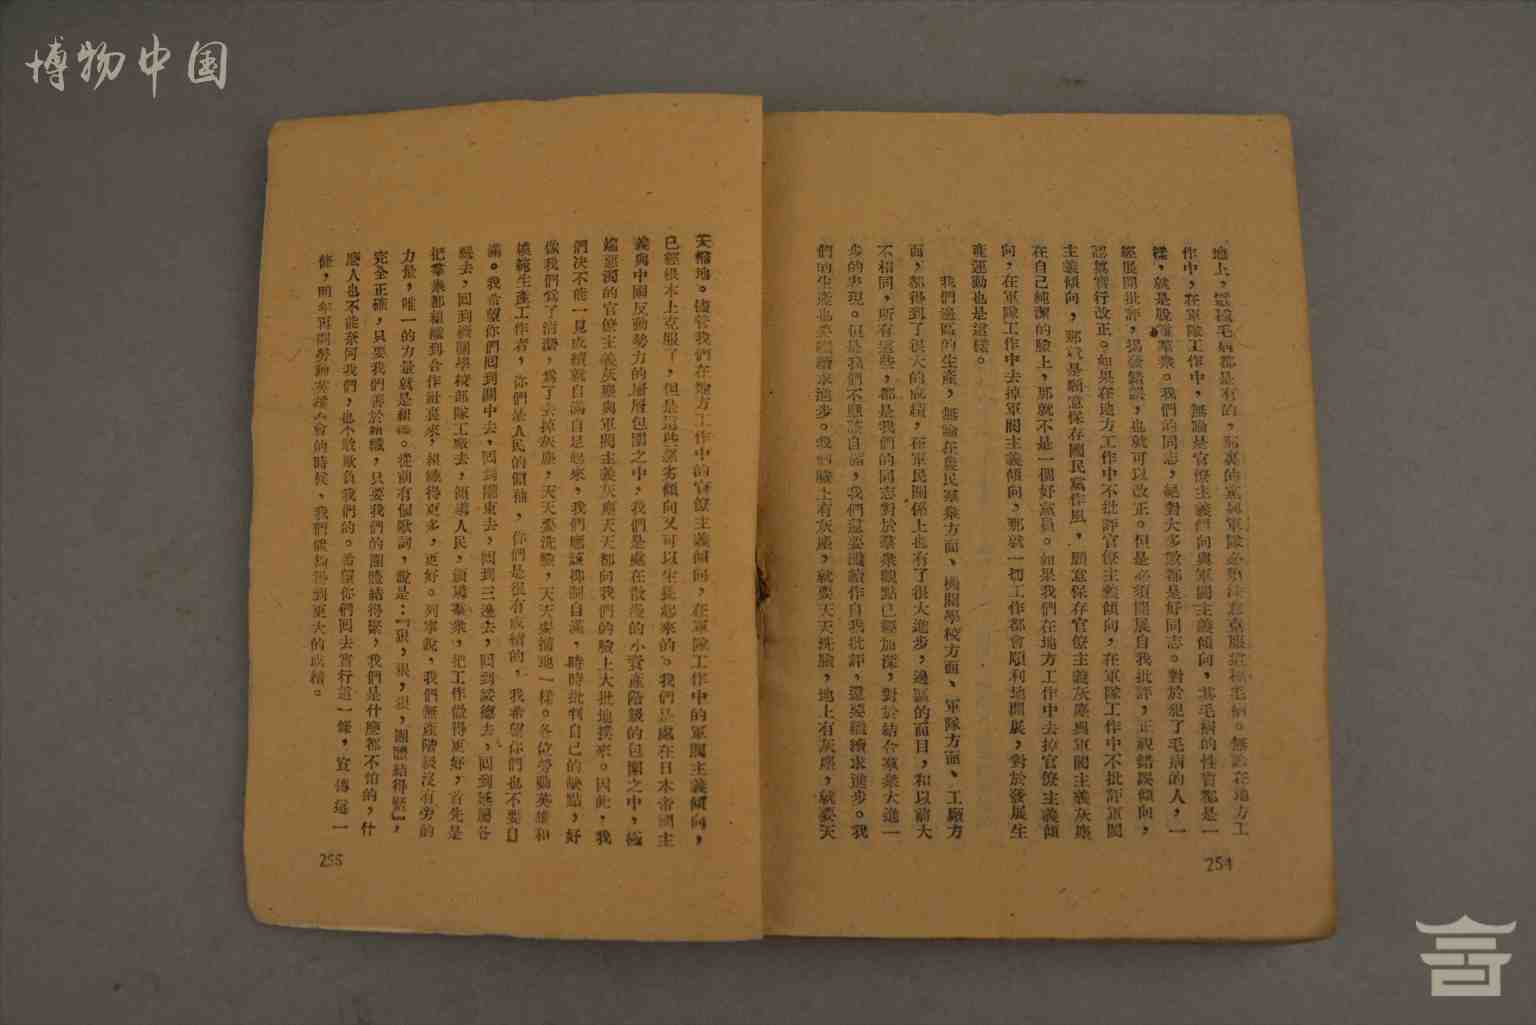 博物中国
地上，這種毛病都是有的，我們的黨與軍隊必須注意克服這種毛病。無論在地方工
作中，在軍隊工作中，無論是官僚主義傾向與軍閥主義傾向，其毛病的性質都是一
樣，就是脫離羣衆。我們的同志，絕對大多數都是好同志。對於犯了毛病的人，一
經展開批評，揭發錯誤，也就可以改正。但是必須開展自我批評，正視錯誤傾向，
認眞實行改正。如果在地方工作中不批評官僚主義傾向，在軍隊工作中不批評軍閥
主義傾向，那就是願意保存國民黨作風，願意保存官僚主義灰塵與軍閥主義灰塵
在自己純潔的臉上，那就不是一個好黨員。如果我們在地方工作中去掉官僚主義傾
向，在軍隊工作中去掉軍閥主義傾向，那就一切工作都會順利地開展，對於發展生
產運動也是這樣。
我們邊區的生產，無論在農民羣衆方面、機關學校方面、軍隊方面、工廠方
面，都得到了很大的成績，在軍民關係上也有了很大進步，邊區的面目，和以前大
不相同，所有這些，都是我們的同志對於羣衆觀點已經加深，對於結合羣衆大進一
步的表現。但是我們不應該自滿，我們還要繼續作自我批評，還要繼續求進步。我
們的生產也要繼續求進步。我們臉上有灰塵，就要天天洗臉，地上有灰塵，就要天
254
天掃地。儘管我們在地方工作中的官僚主義傾向，在軍隊工作中的軍閥主義傾向，
已經根本上克服了，但是這些惡劣傾向又可以生長起來的。我們是處在日本帝國主
義與中國反動勢力的層層包圍之中，我們是處在散漫的小資產階級的包圍之中，極
端惡濁的官僚主義灰塵與軍閥主義灰塵天天都向我們的臉上大批地撲來。因此，我
們決不能一見成績就自滿自足起來，我們應該抑制自滿，時時批判自己的缺點，好
像我們爲了清潔，爲了去掉灰塵，天天要洗臉，天天要掃地一樣。各位勞動英雄和
模範生產工作者，你們是人民的領袖，你們是很有成績的，我希望你們也不要自
滿。我希望你們回到關中去，回到隴東去，回到三邊去，回到綏德去，回到延屬各
縣去，回到機關學校部隊工廠去，領導人民，領導羣衆，把工作做得更好，首先是
把羣衆都組織到合作社裏來，組織得更多，更好。列寧說，我們無產階級沒有旁的
力量，唯一的力量就是組織。從前有個歌詞，說是：『狠，狠，狠，團體結得緊』，
完全正確，只要我們善於組織，只要我們的團體結得緊，我們是什麼都不怕的，什
麼人也不能奈何我們，也不敢欺負我們的。希望你們回去實行這一條，宣傳這一
條，明年再開勞動英雄大會的時候，我們就能得到更大的成績。
255